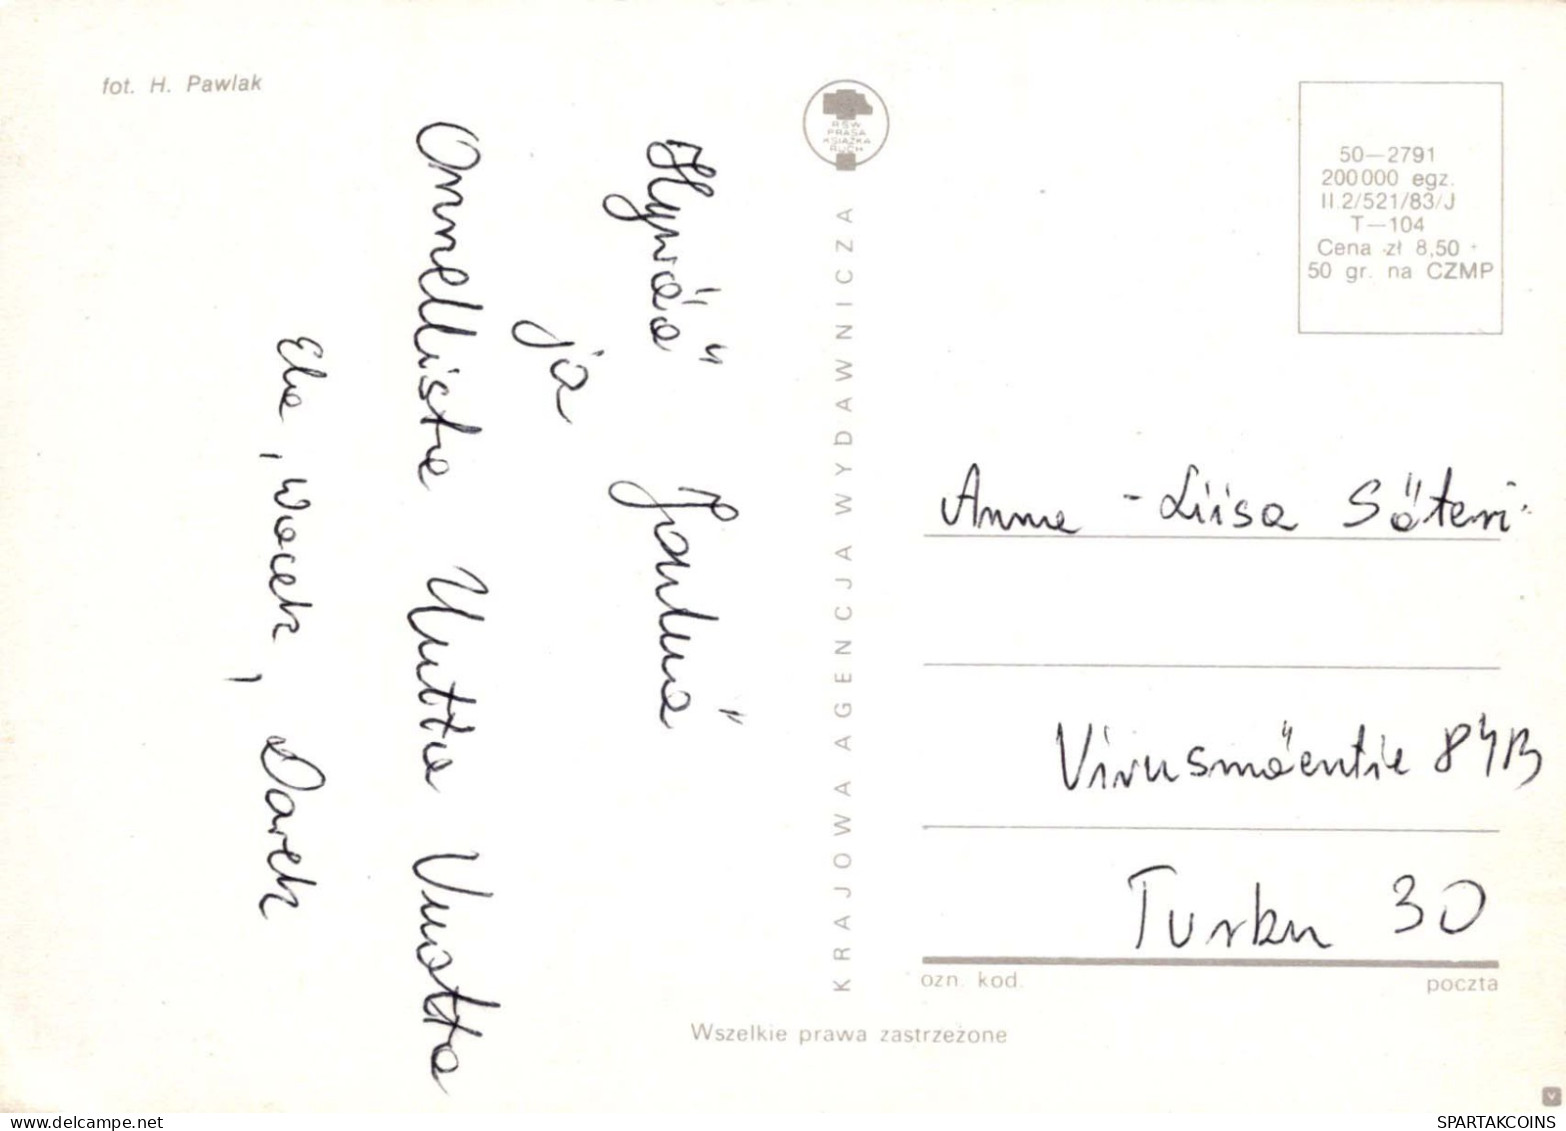 fot. H. Pawlak
Hyvää Joulua
ja
Onnellista Uutta Vuotta
Ela, Wacek, Darek
RSW
PRASA
KSIĄŻKA
RUCH
KRAJOWA AGENCJA WYDAWNICZA
50—2791
200 000 egz.
II.2/521/83/J
T—104
Cena zł 8,50 +
50 gr. na CZMP
Anna - Liisa Säteri
Virusmäentie 84B
Turku 30
ozn. kod.
poczta
Wszelkie prawa zastrzeżone
SPARTAKCOINS